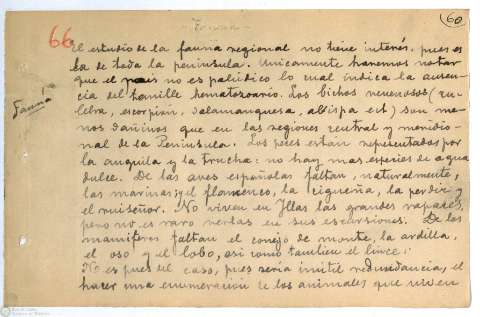 - Fauna -
60
66
El estudio de la fauna regional no tiene interés, pues es
la de toda la península. Unicamente haremos notar
que el pais no es palúdico lo cual indica la ausen-
cia del hematozoario. Los bichos venenosos (cu-
lebra, escorpión, salamanquesa, abispa etc) son me-
nos dañinos que en las regiones central y meridio-
nal de la Península. Los peces están representados por
la anguila y la trucha: no hay mas especies de agua
dulce. De las aves españolas faltan, naturalmente,
las marinas; y el flamenco, la cigueña, la perdiz y
el ruiseñor. No viven en Illas las grandes rapaces,
pero no es raro verlas en sus escursiones. De los
mamiferos faltan el conejo de monte, la ardilla,
el oso y el lobo, asi como tambien el lince.
No es pues del caso, pues seria inutil redundancia, el
hacer una enumeración de los animales que viven
Fauna